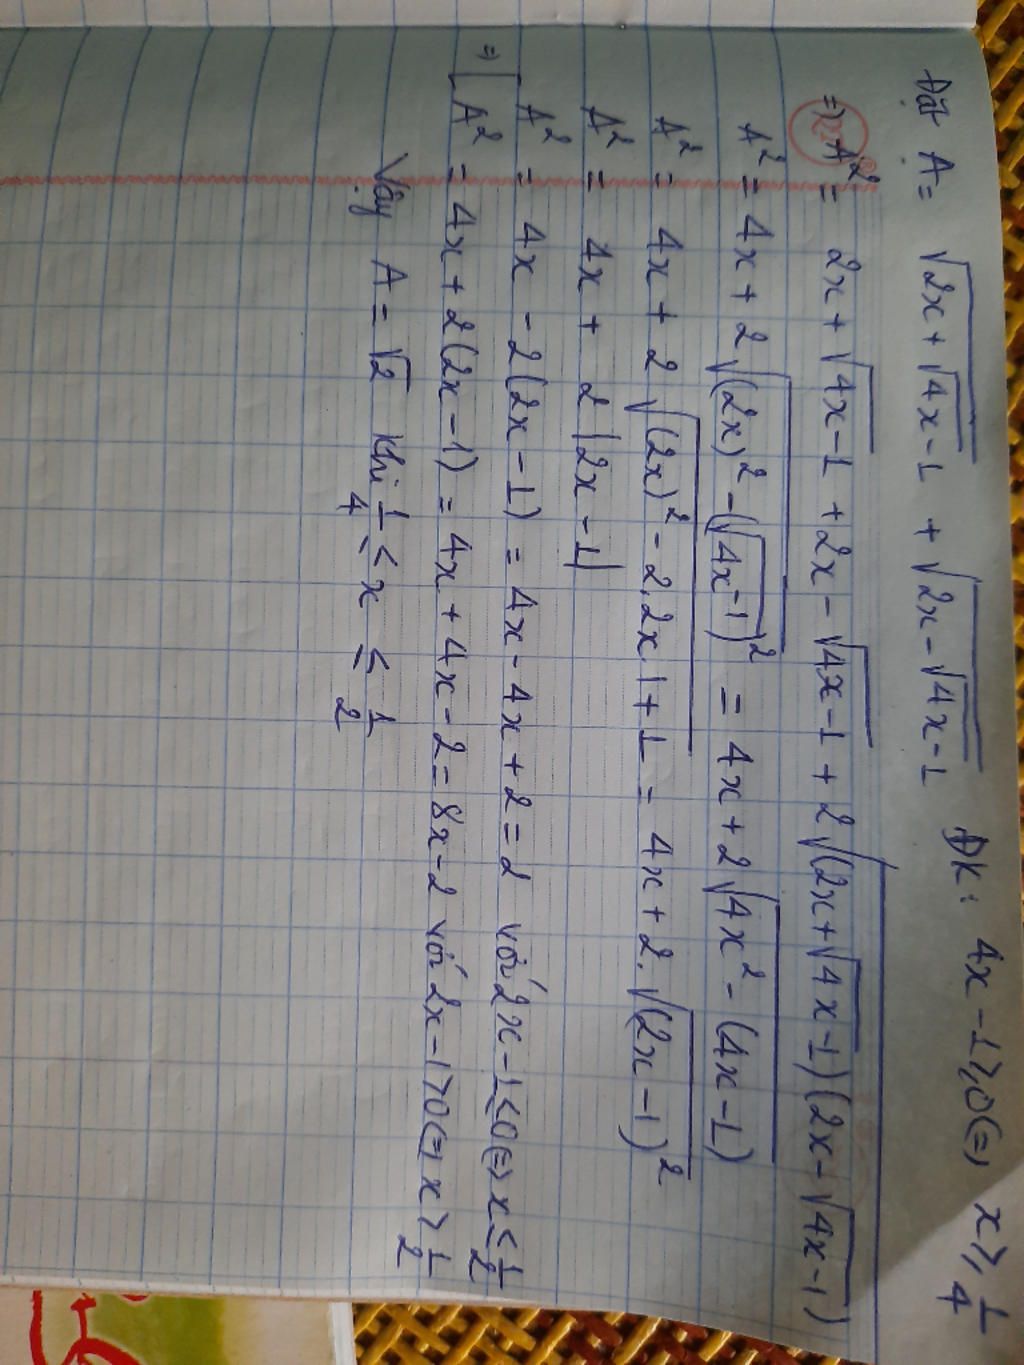 Đặt A = √(2x + √(4x-1)) + √(2x - √(4x-1)) ĐK: 4x - 1 ≥ 0 (=) x ≥ 1/4
=> A² = 2x + √(4x-1) + 2x - √(4x-1) + 2√((2x+√(4x-1))(2x-√(4x-1)))
A² = 4x + 2√((2x)² - (√(4x-1))²) = 4x + 2√(4x² - (4x-1))
A² = 4x + 2√((2x)² - 2.2x.1 + 1) = 4x + 2.√((2x-1)²)
A² = 4x + 2|2x - 1|
=> [ A² = 4x - 2(2x - 1) = 4x - 4x + 2 = 2 với 2x - 1 ≤ 0 (=) x ≤ 1/2
A² = 4x + 2(2x - 1) = 4x + 4x - 2 = 8x - 2 với 2x - 1 > 0 (=) x > 1/2
Vậy A = √2 khi 1/4 ≤ x ≤ 1/2